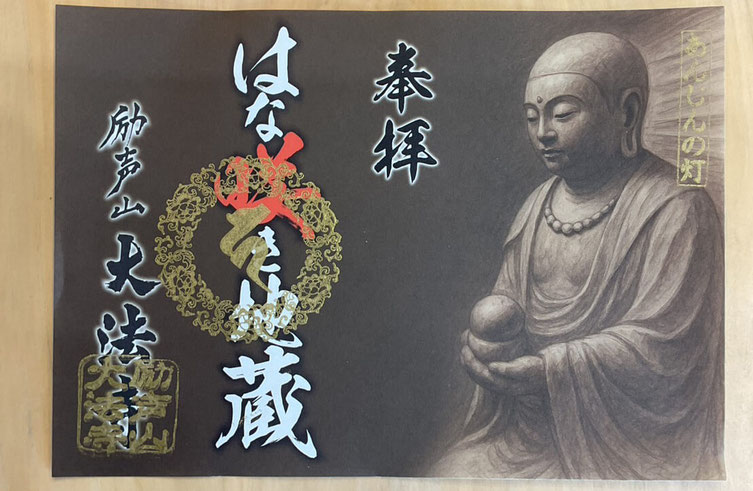 あんしんの灯
奉拝
はな咲き地蔵
励声山 大法寺
励声山
大法寺